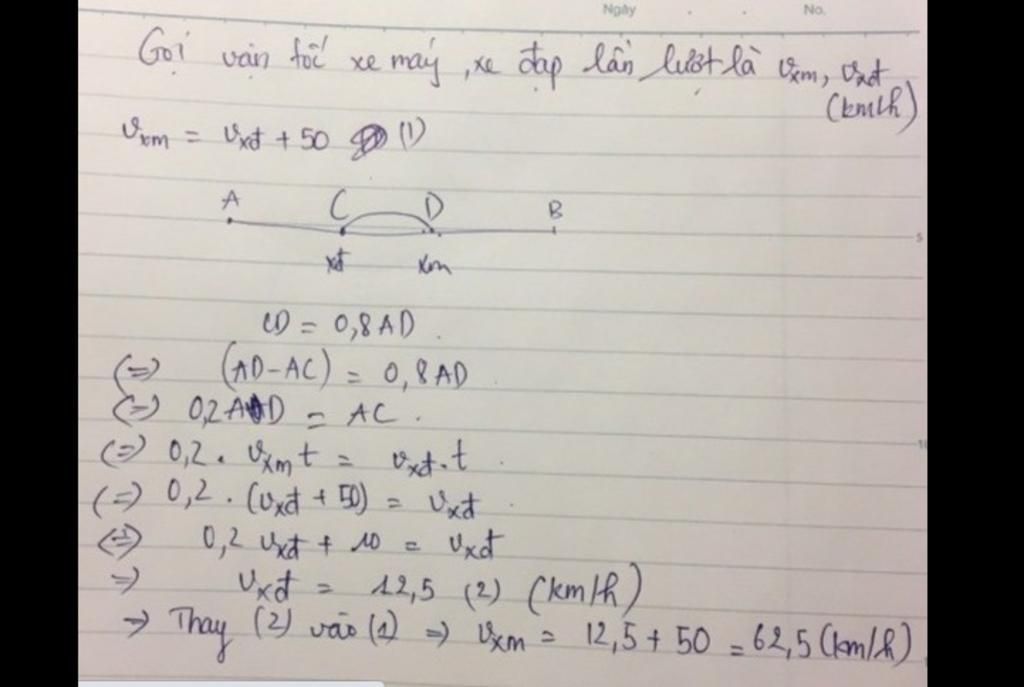 Ngày . . No.
Gọi vận tốc xe máy, xe đạp lần lượt là vxm, vxđ
(km/h)
vxm = vxđ + 50 (1)
A C D B
xđ xm
5
CD = 0,8 AD.
(=) (AD-AC) = 0,8 AD
(=) 0,2 AD = AC.
10
(=) 0,2 . vxm t = vxđ . t
(=) 0,2 . (vxđ + 50) = vxđ
(=) 0,2 vxđ + 10 = vxđ
=) vxđ = 12,5 (2) (km/h)
=> Thay (2) vào (1) => vxm = 12,5 + 50 = 62,5 (km/h)